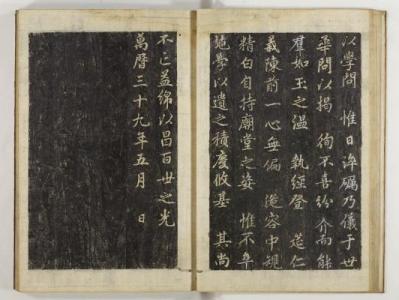 以學問 惟日淬礪乃儀于世
華問以揚 徇不喜紛介而能
羣如玉之溫 執經登 筵仁
義陳前一心無偏 從容中規
精白自持廟堂之姿 惟不卒
施學以遺之積度攸基 其尚
不亡益綿以昌百世之光
萬曆三十九年五月 日